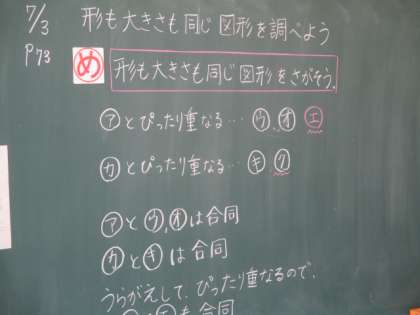 7/3 形も大きさも同じ図形を調べよう
P73
め 形も大きさも同じ図形をさがそう。
アとぴったり重なる… ウ,オ エ
カとぴったり重なる… キ ク
アとウ,オは合同
カとキは合同
うらがえして、ぴったり重なるので、
も合同